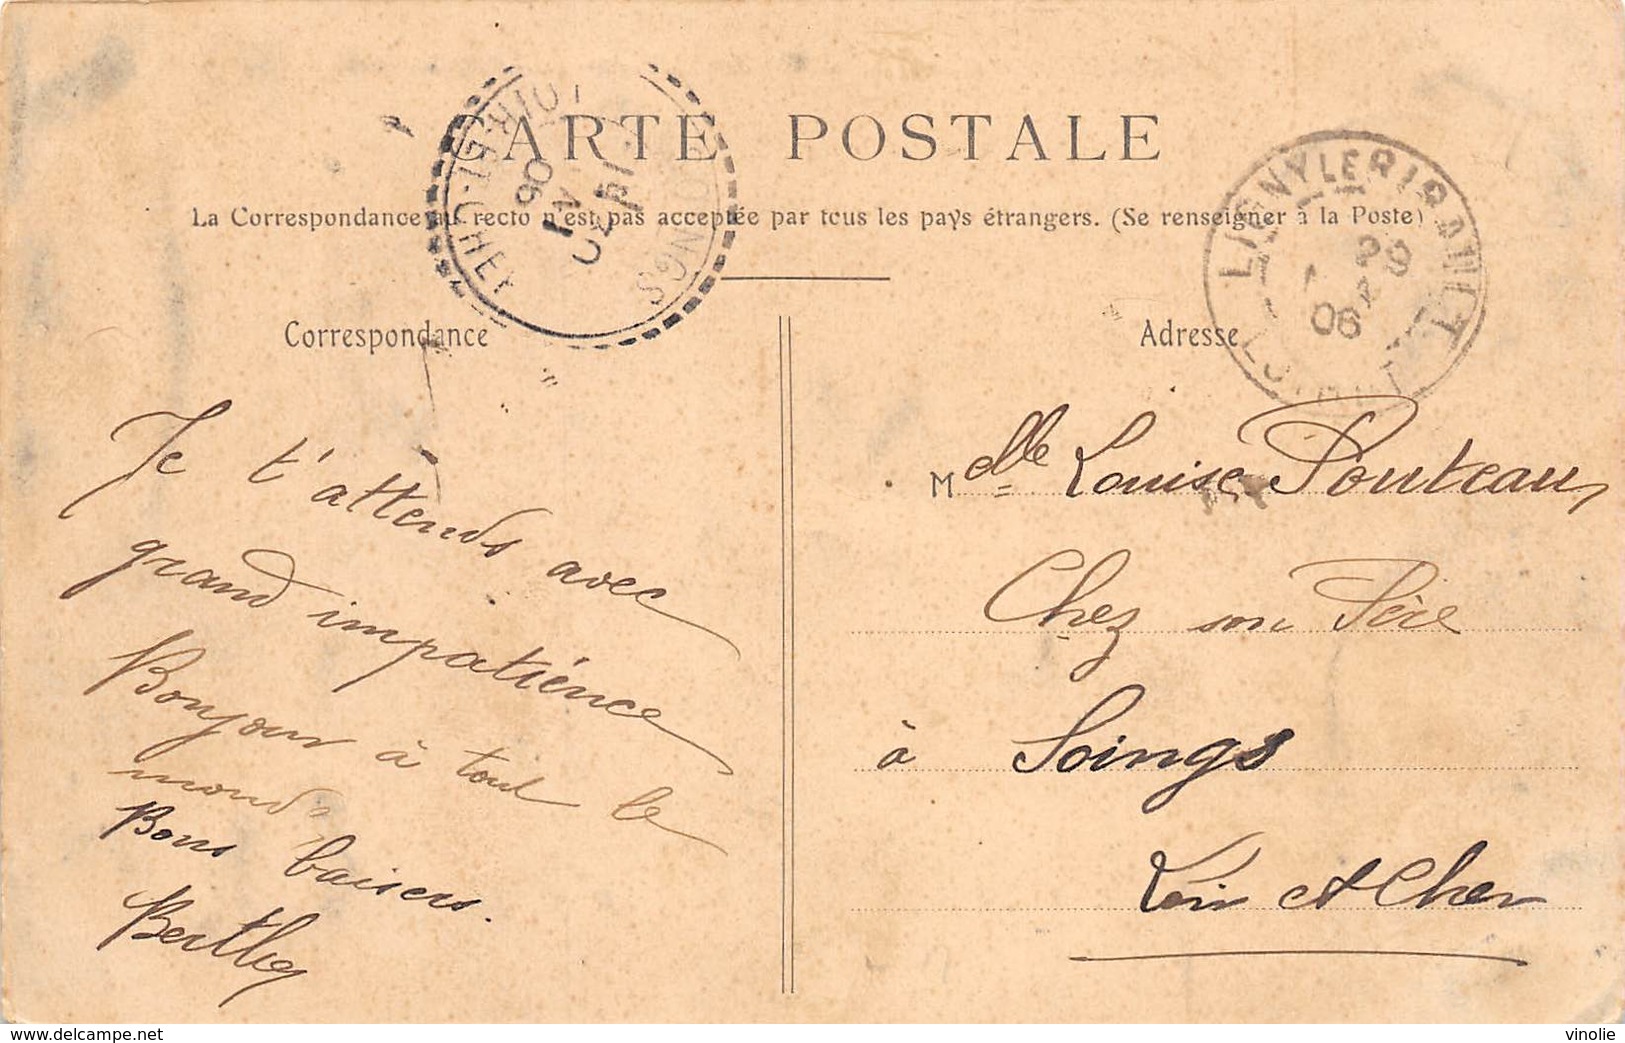 CARTE POSTALE
La Correspondance au recto n'est pas acceptée par tous les pays étrangers. (Se renseigner à la Poste)
Correspondance
Je t'attends avec
grand impatiénce
Bonjour à tout le
monde
Bons baisers.
Berthe
Adresse
Melle Louise Pouteau
Chez son Père
à Soings
Loir et Cher
SOINGS
LOIR-ET-CHER
06
LIGNY LE RIBAULT
29
06
LOIRET
www.delcampe.net
vinolie